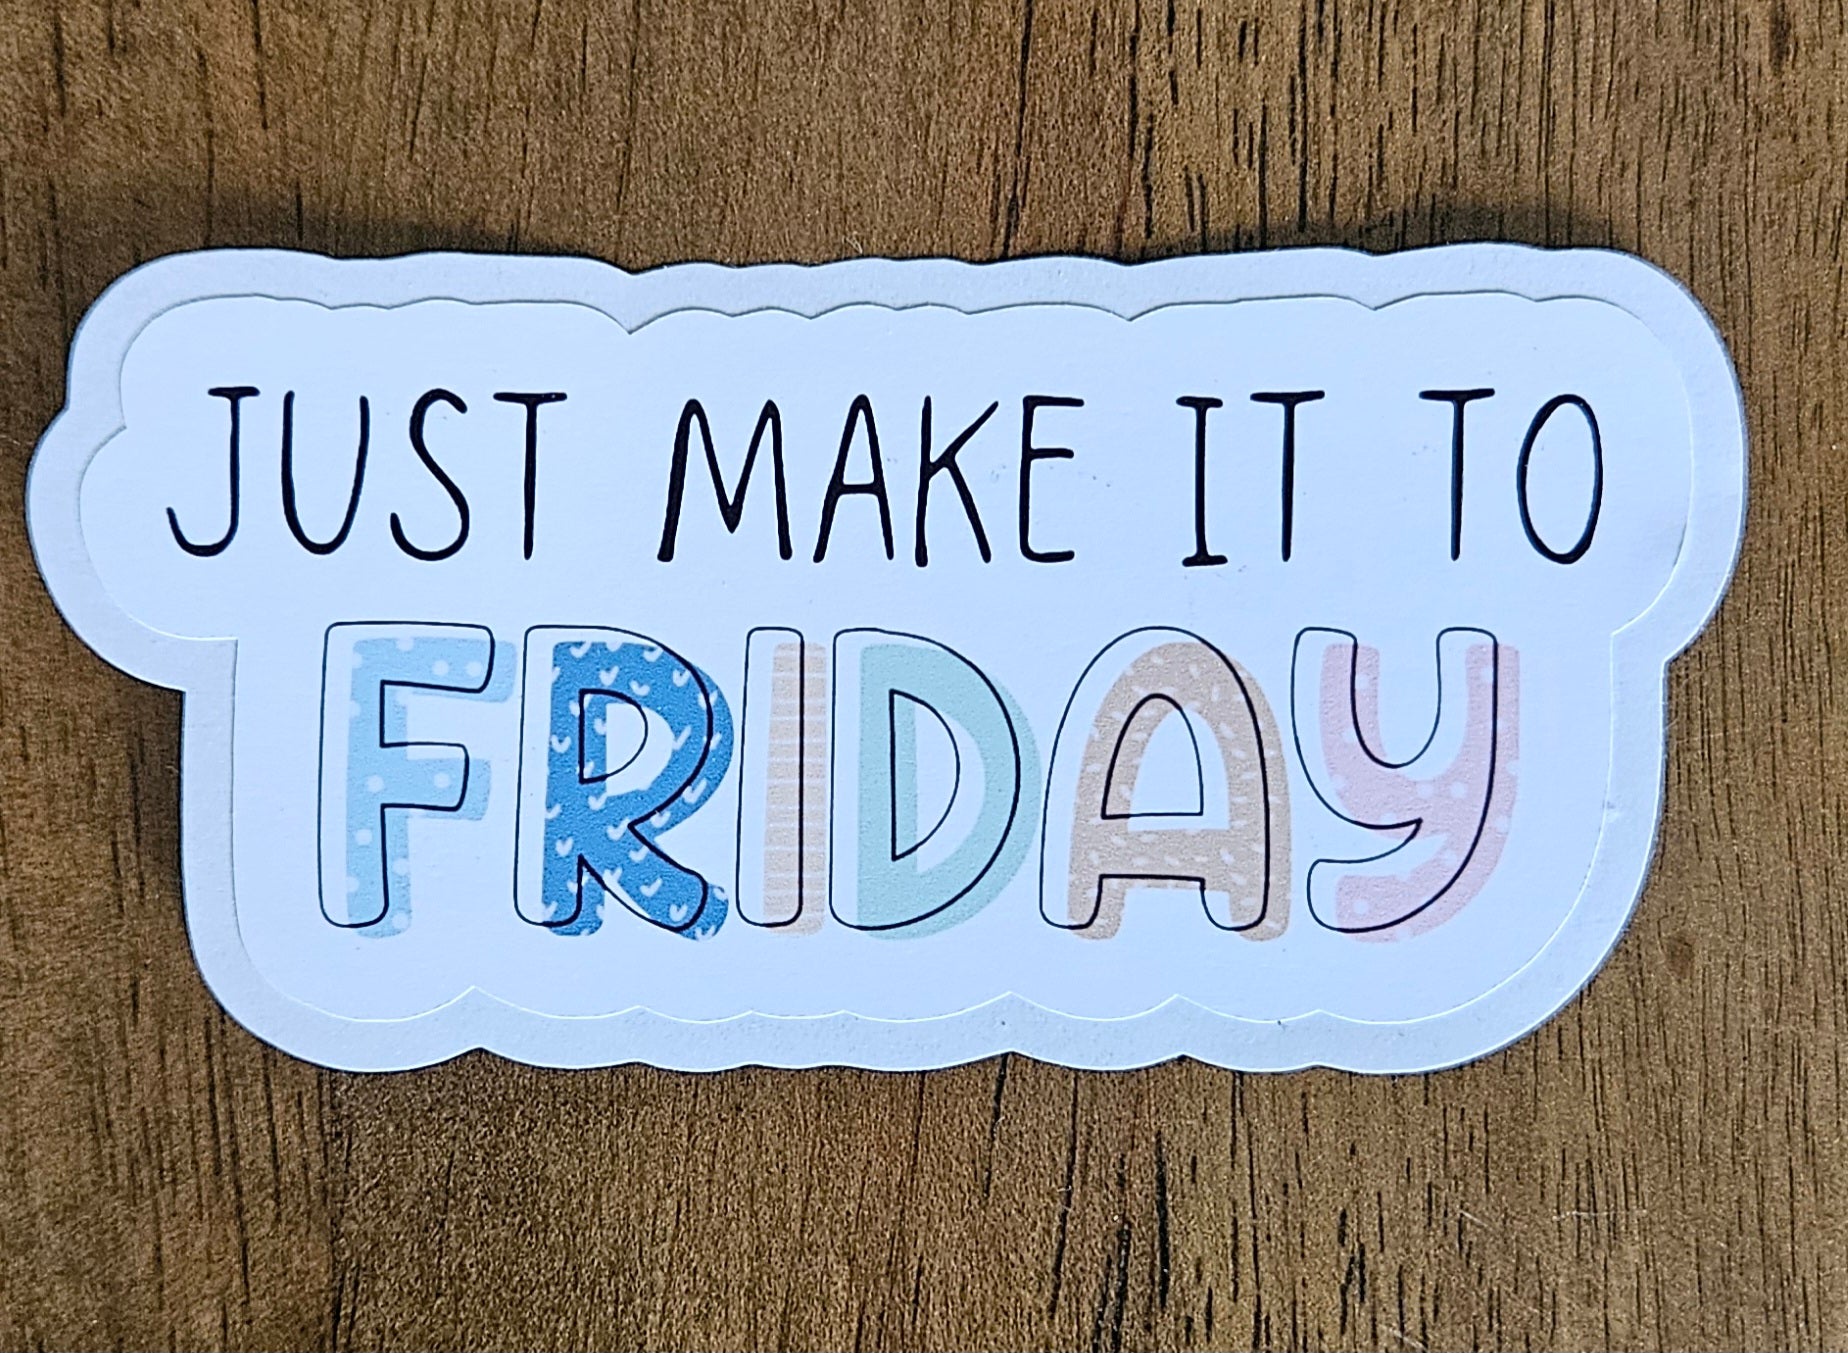 JUST MAKE IT TO
FRIDAY